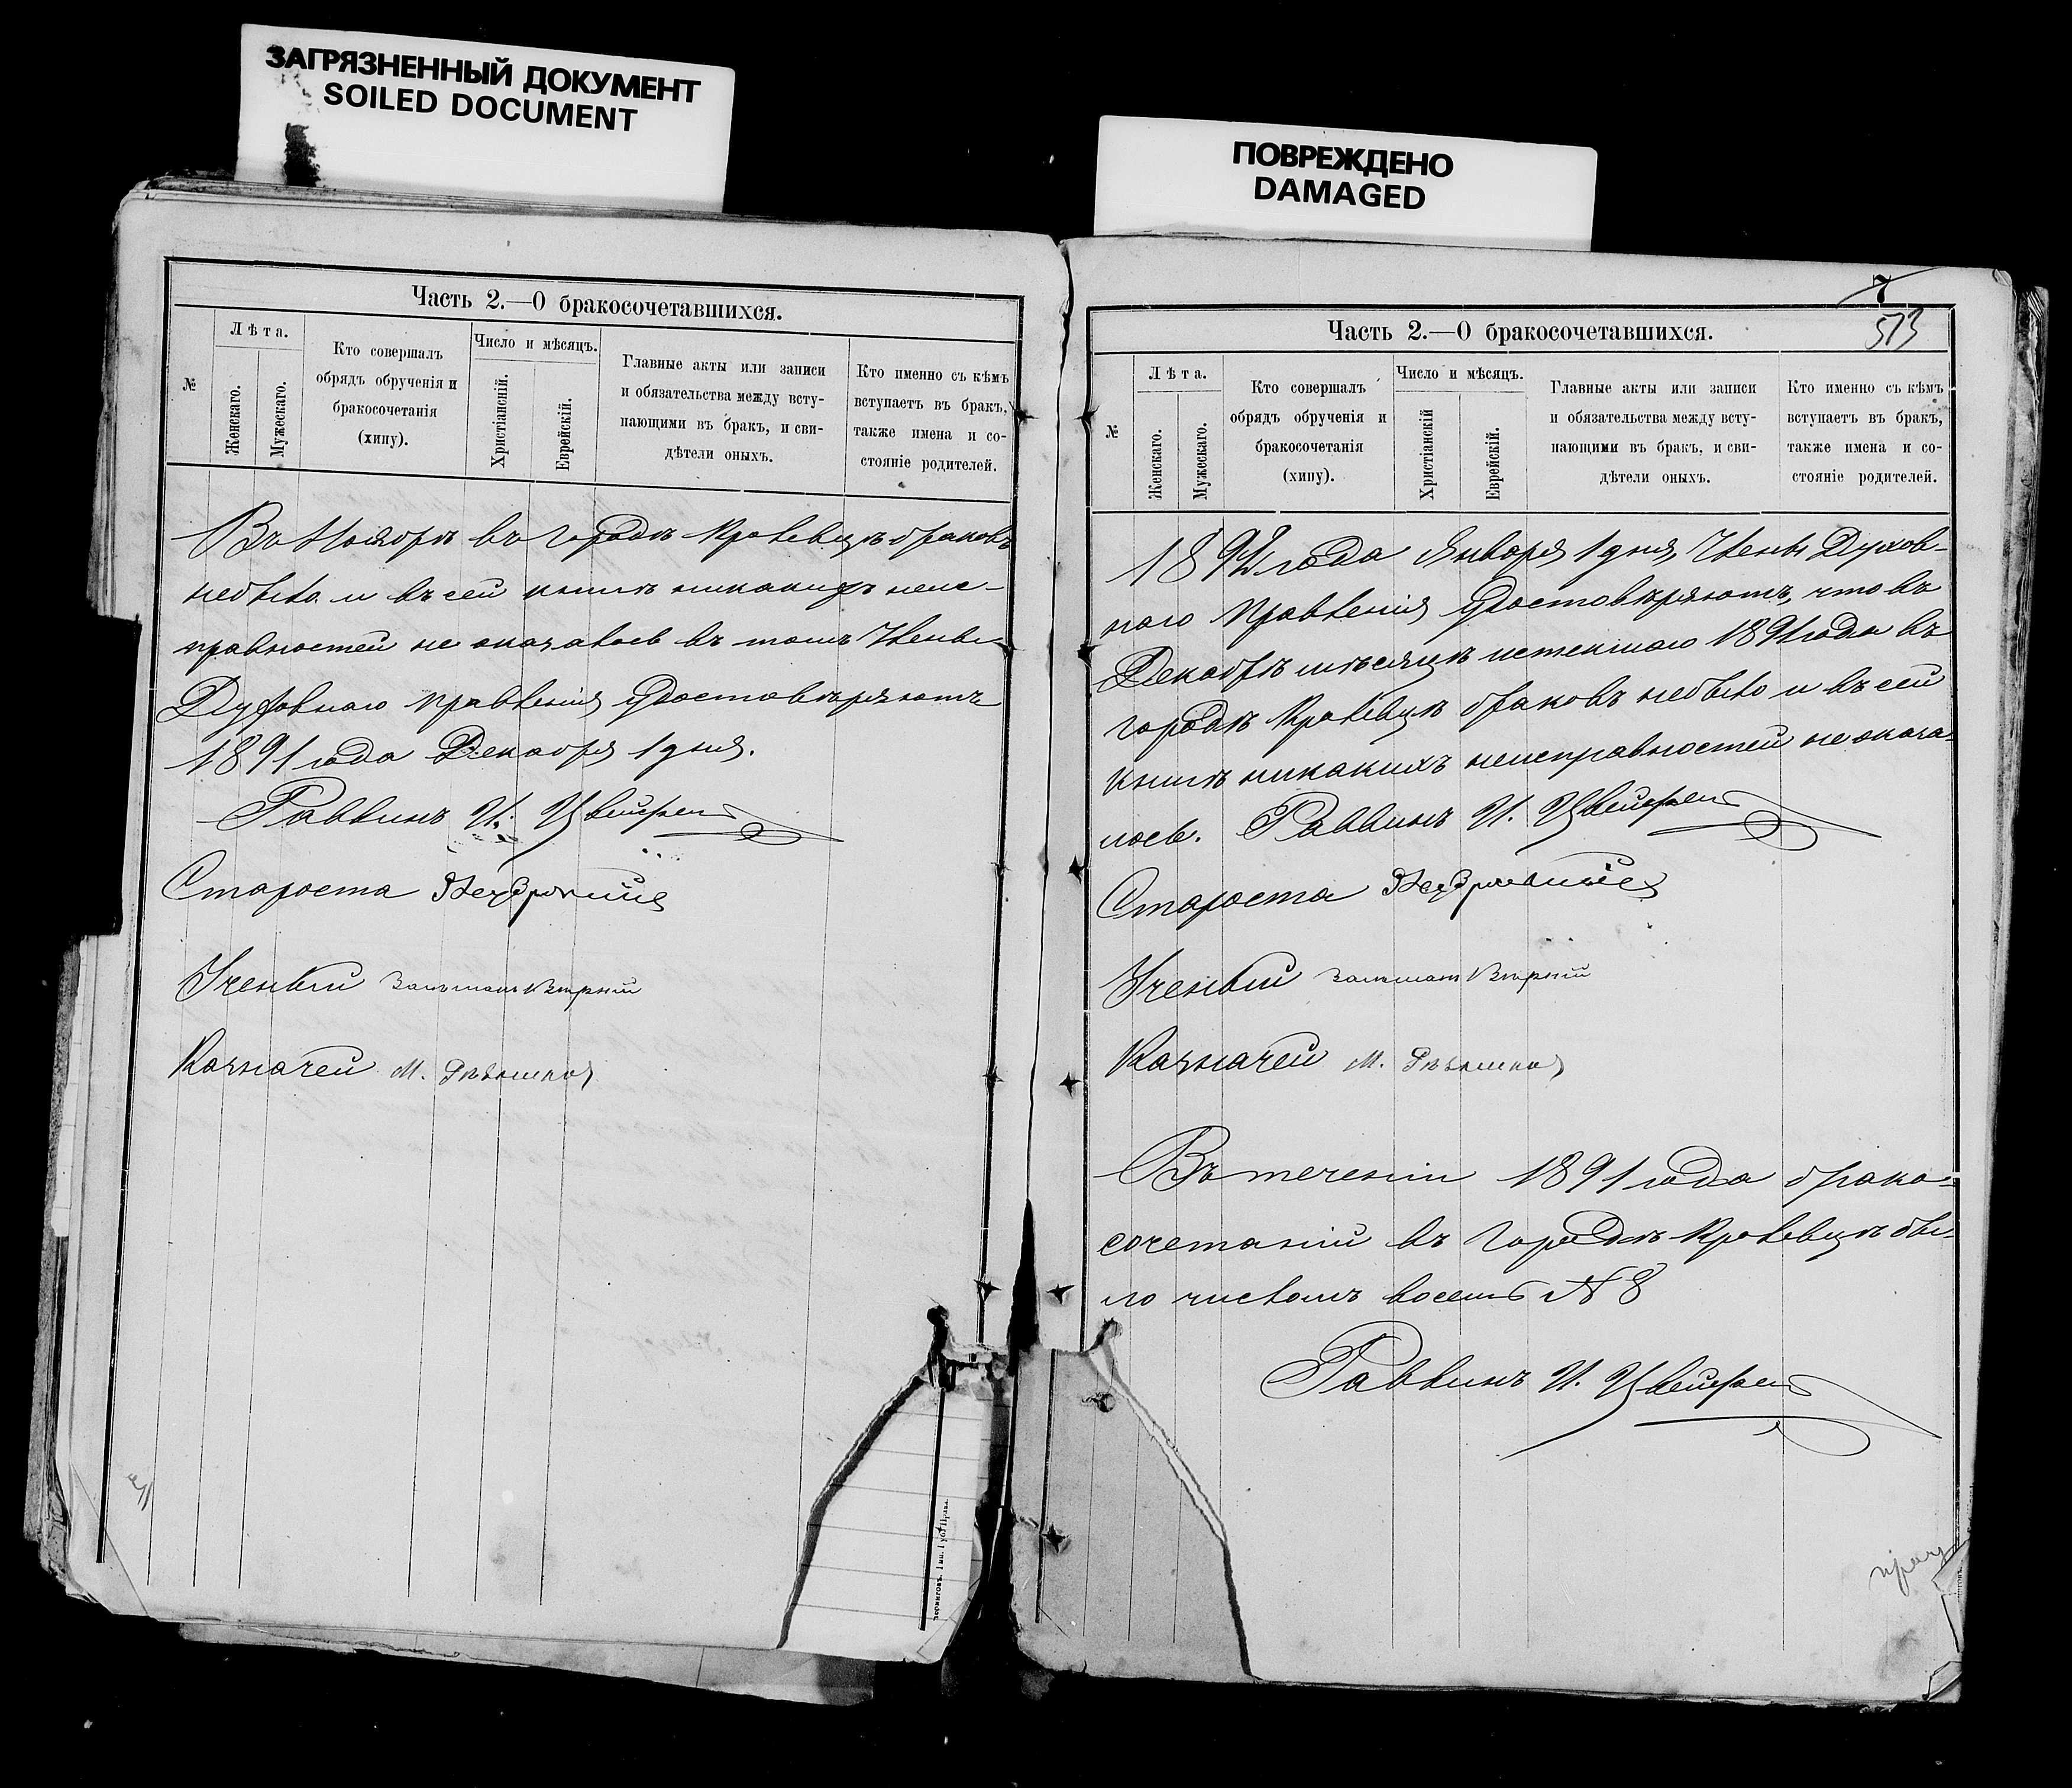 ЗАГРЯЗНЕННЫЙ ДОКУМЕНТ
SOILED DOCUMENT
Часть 2.—О бракосочетавшихся.
№
Лѣта.
Женскаго.
Мужескаго.
Кто совершалъ
обрядъ обрученія и
бракосочетанія
(хипу).
Число и мѣсяцъ.
Христіанскій.
Еврейскій.
Главные акты или записи
и обязательства между всту-
пающими въ бракъ, и сви-
дѣтели оныхъ.
Кто именно съ кѣмъ
вступаетъ въ бракъ,
также имена и со-
стояніе родителей.
Въ Ноябрѣ въ городѣ Кролевцѣ браковъ
небыло и въ сей книгѣ никакихъ неис-
правностей не оказалось въ томъ Члены
Духовнаго Правленія удостовѣряютъ
1891 года Декабря 1 дня.
Раввинъ И.
Староста
Ученый
Казначей М.
ПОВРЕЖДЕНО
DAMAGED
7
513
Часть 2.—О бракосочетавшихся.
№
Лѣта.
Женскаго.
Мужескаго.
Кто совершалъ
обрядъ обрученія и
бракосочетанія
(хипу).
Число и мѣсяцъ.
Христіанскій
Еврейскій.
Главные акты или записи
и обязательства между всту-
пающими въ бракъ, и сви-
дѣтели оныхъ.
Кто именно съ кѣмъ
вступаетъ въ бракъ,
также имена и со-
стояніе родителей.
1892 года Января 1 дня, Члены Духов-
наго Правленія удостовѣряютъ, что въ
Декабрѣ мѣсяцѣ истекшаго 1891 года въ
городѣ Кролевцѣ браковъ небыло и въ сей
книгѣ никакихъ неисправностей не оказа-
лось. Раввинъ И.
Староста
Ученый
Казначей М.
Въ теченіи 1891 года брако-
сочетаній въ городѣ Кролевцѣ бы-
ло числомъ восемь № 8
Раввинъ И.